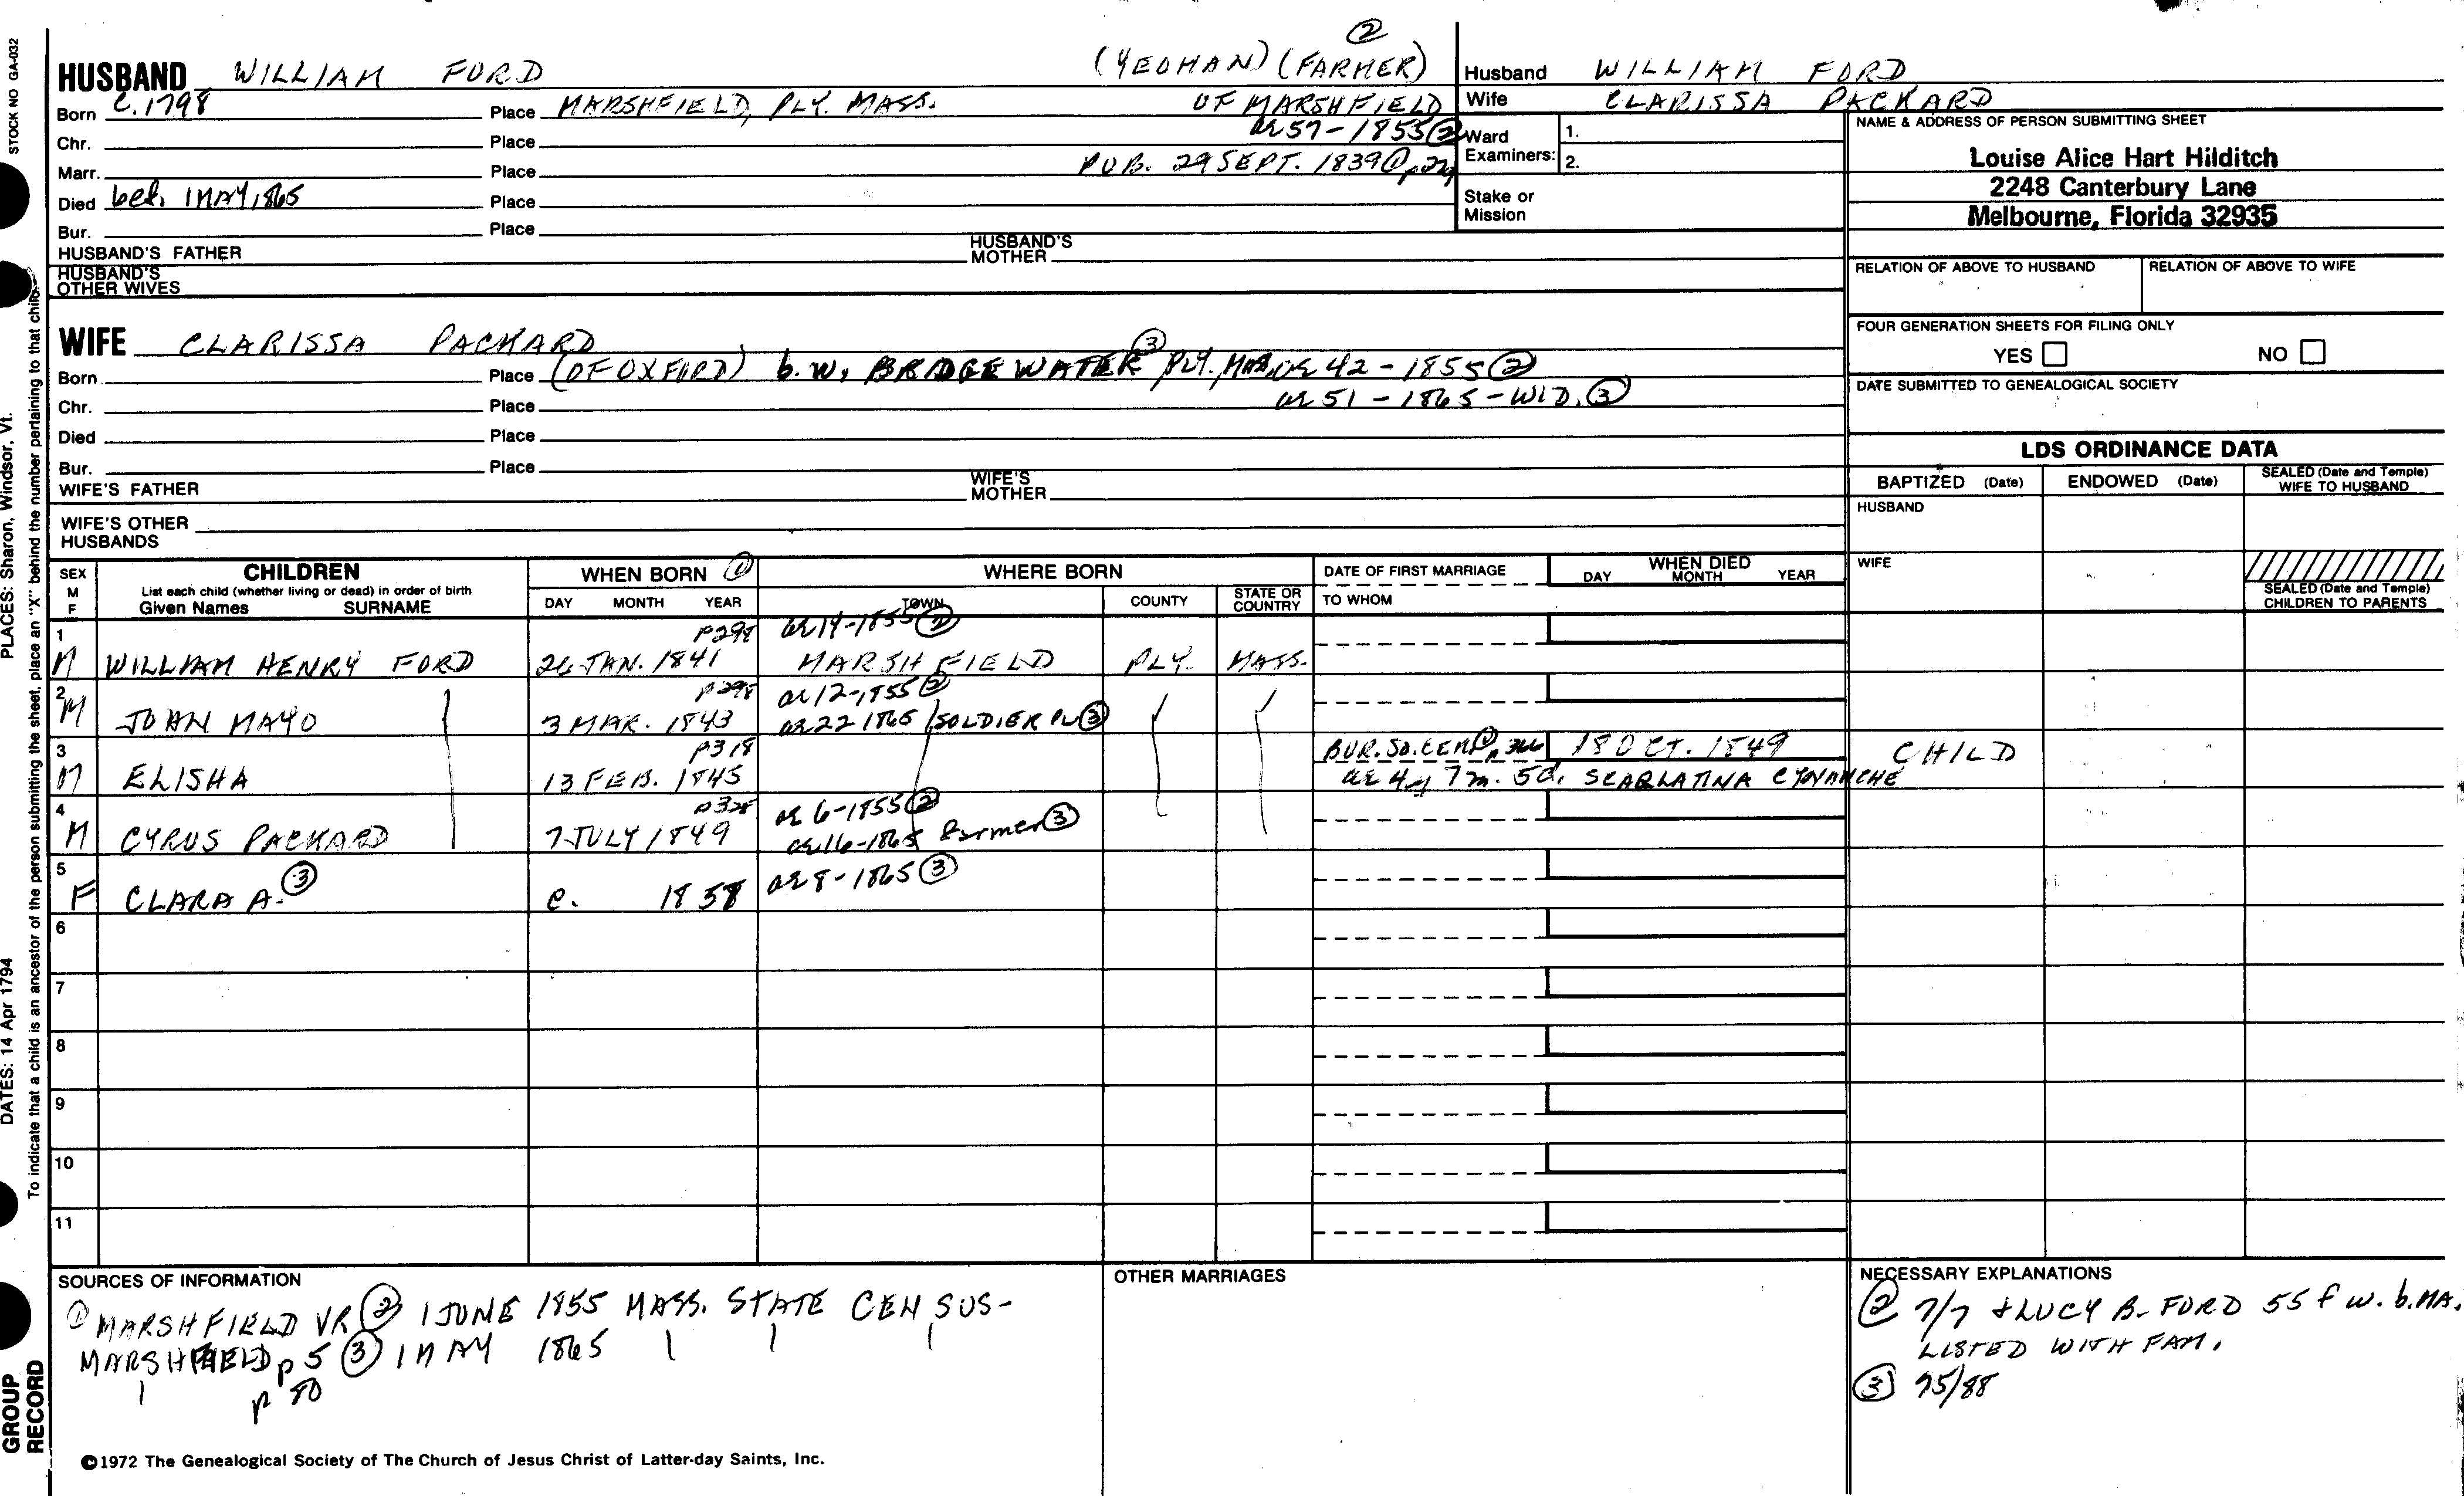 STOCK NO GA-032
PLACES: Sharon, Windsor, Vt.
DATES: 14 Apr 1794
To indicate that a child is an ancestor of the person submitting the sheet, place an "X" behind the number pertaining to that child.
GROUP
RECORD
②
HUSBAND WILLIAM FORD (YEOMAN) (FARMER)
Born c. 1798 Place MARSHFIELD, PLY. MASS. OF MARSHFIELD
Chr. Place ae 57-1855 ②
Marr. Place PUB. 29 SEPT. 1839 ①
Died bef. 1 MAY, 1865 Place
Bur. Place
HUSBAND'S FATHER HUSBAND'S MOTHER
HUSBAND'S
OTHER WIVES
Husband WILLIAM FORD
Wife CLARISSA PACKARD
Ward
Examiners: 1.
2.
Stake or
Mission
NAME & ADDRESS OF PERSON SUBMITTING SHEET
Louise Alice Hart Hilditch
2248 Canterbury Lane
Melbourne, Florida 32935
RELATION OF ABOVE TO HUSBAND RELATION OF ABOVE TO WIFE
FOUR GENERATION SHEETS FOR FILING ONLY
YES NO
DATE SUBMITTED TO GENEALOGICAL SOCIETY
WIFE CLARISSA PACKARD
Born Place (OF OXFORD) b. W. BRIDGEWATER ③ PLY. MAS. ae 42-1855 ②
Chr. Place ae 51-1865-WID. ③
Died Place
Bur. Place
WIFE'S FATHER WIFE'S MOTHER
WIFE'S OTHER
HUSBANDS
LDS ORDINANCE DATA
BAPTIZED (Date) ENDOWED (Date) SEALED (Date and Temple) WIFE TO HUSBAND
HUSBAND
WIFE
SEALED (Date and Temple) CHILDREN TO PARENTS
SEX M F CHILDREN WHEN BORN ① WHERE BORN DATE OF FIRST MARRIAGE WHEN DIED
List each child (whether living or dead) in order of birth
Given Names SURNAME DAY MONTH YEAR TOWN COUNTY STATE OR COUNTRY TO WHOM DAY MONTH YEAR
1 p298 ae 14-1855 ②
M WILLIAM HENRY FORD JAN. 1841 MARSHFIELD PLY. MASS.
2 p298 ae 12-1855 ②
M JOHN MAYO 3 MAR. 1843 ae 22 1865 SOLDIER ③
3 p318 BUR. SO. CEM. ① 18 OCT. 1849 CHILD
M ELISHA 13 FEB. 1845 ae 4y 7m. 5d. SCARLATINA CYNANCHE
4 ae 6-1855 ②
M CYRUS PACKARD 7 JULY 1849 ae 16-1865 farmer ③
5 ae 8-1865 ③
F CLARA A. ③ c. 1858
6
7
8
9
10
11
SOURCES OF INFORMATION
① MARSHFIELD VR ② 1 JUNE 1855 MASS. STATE CENSUS-
MARSHFIELD p 5 ③ 1 MAY 1865
p 80
OTHER MARRIAGES
NECESSARY EXPLANATIONS
② 7/7 + LUCY B. FORD 55 f w. b. MA.
LISTED WITH FAM.
③ 75/88
©1972 The Genealogical Society of The Church of Jesus Christ of Latter-day Saints, Inc.